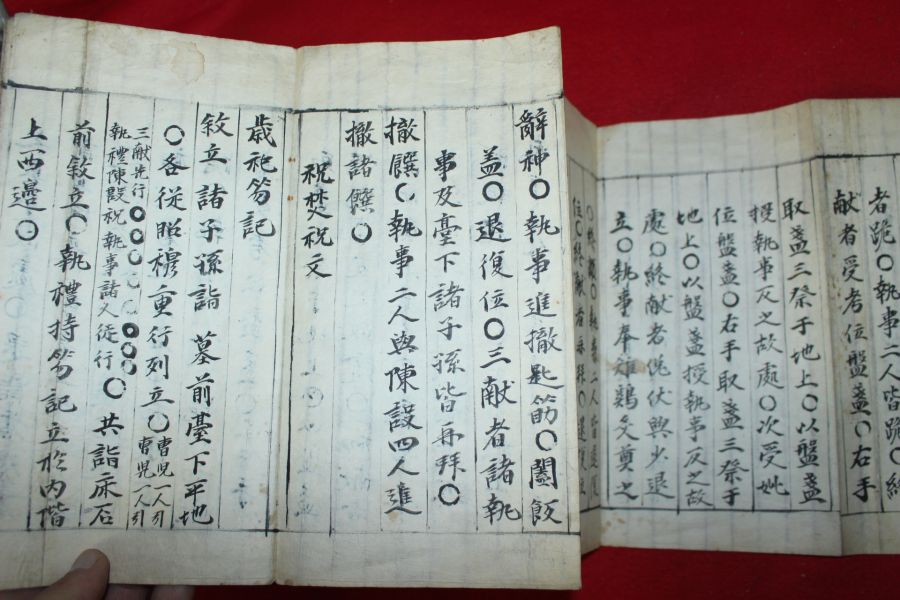 者跪〇執事二人皆跪〇終
献者受考位盤盞〇右手
取盞三祭于地上〇以盤盞
授執事反之故處〇次受妣
位盤盞〇右手取盞三祭于
地上〇以盤盞授執事反之故
處〇終献者俛伏興少退
立〇執事奉雉鷄炙奠之
辭神〇執事進撤匙筯〇闔飯
盖〇退復位〇三献者諸執
事及臺下諸子孫皆再拜〇
撤饌〇執事二人與陳設四人進
撤諸饌〇
祝焚祝文
歲祀笏記
敘立諸子孫詣 墓前臺下平地
〇各從昭穆重行列立〇曺児一人引
曺児一人引
三献先行〇〇〇〇〇〇〇〇
執禮陳設祝執事諸人從行〇共詣床石
前敘立〇執禮持笏記立於内階
上西邊〇